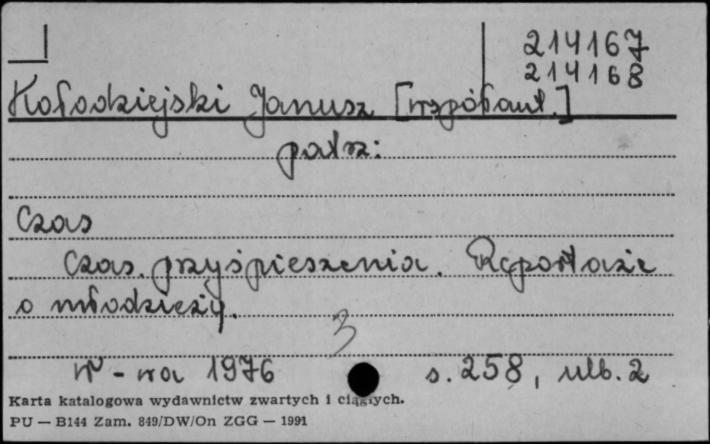 214167
214168
Kołodziejski Janusz [współaut.]
patrz:
Czas
Czas przyśpieszenia. Reportaże
o młodzieży.
3
W-wa 1976 s. 258, ulb. 2
Karta katalogowa wydawnictw zwartych i ciągłych.
PU — B144 Zam. 849/DW/On ZGG — 1991